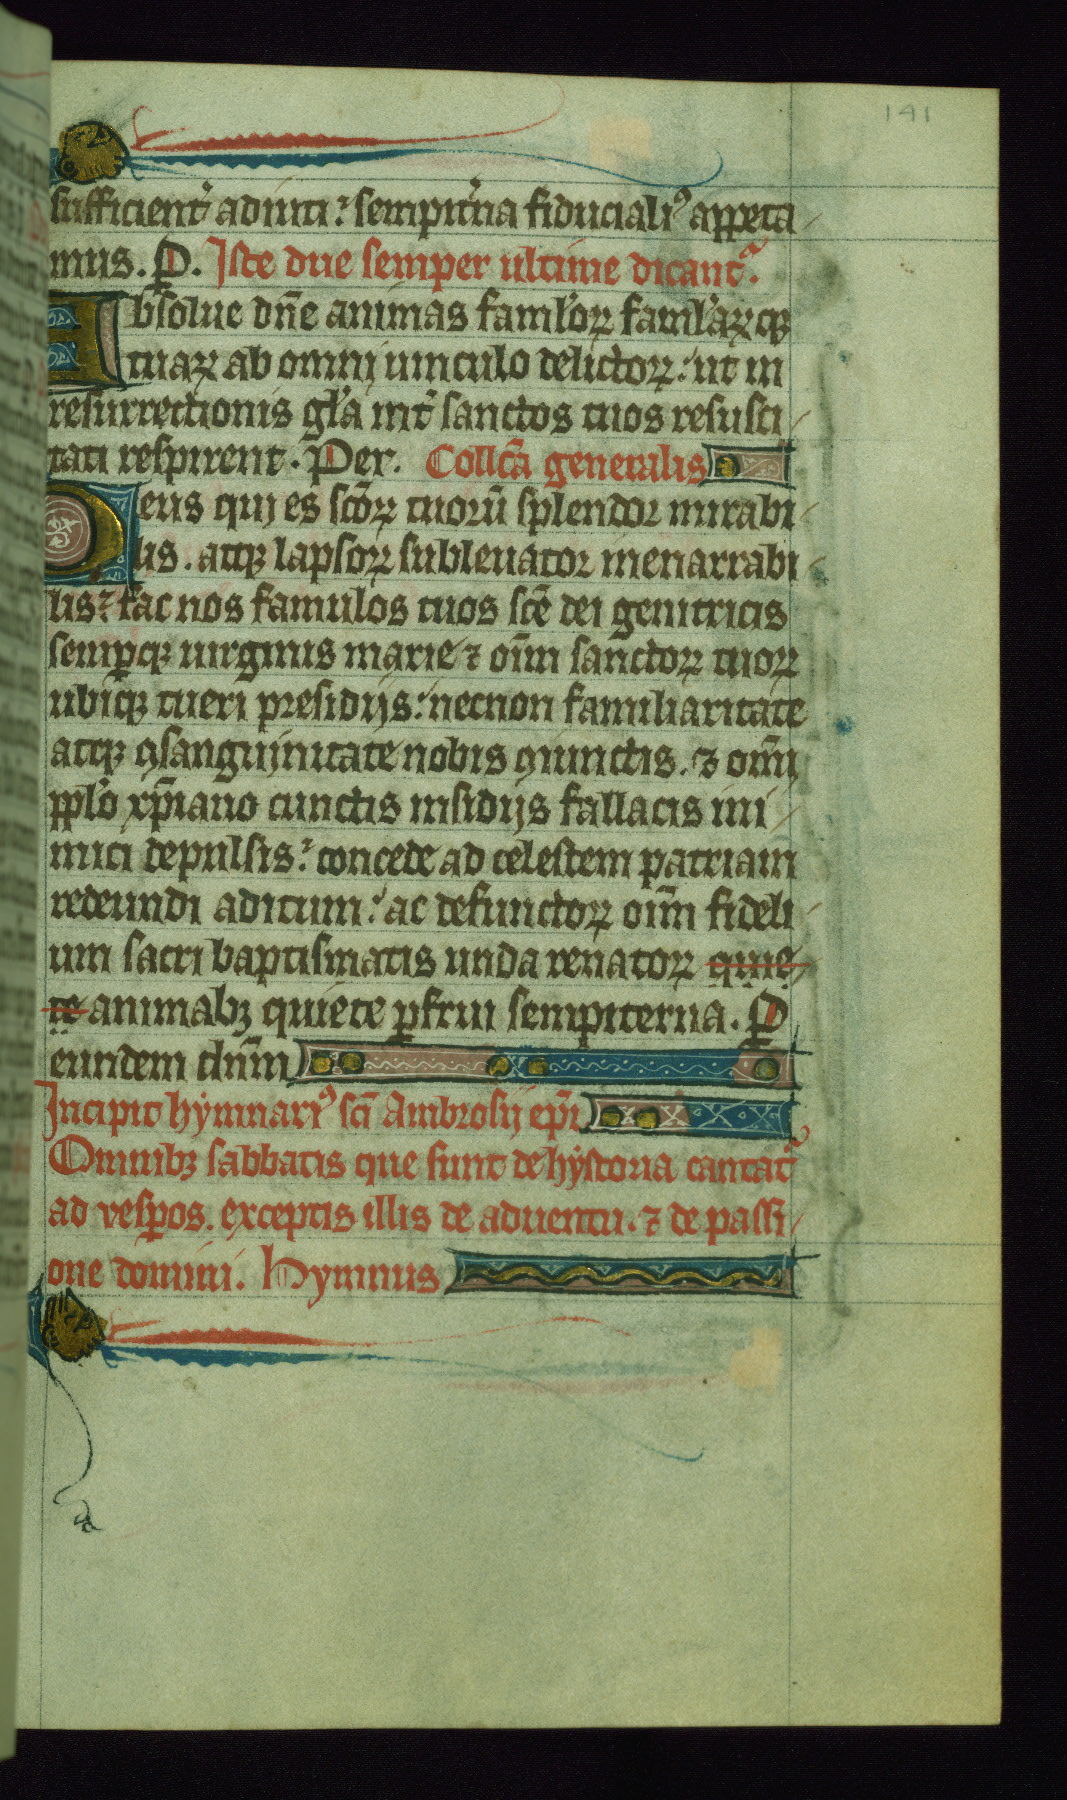 141
sufficient᷑ adiuti: sempit᷑na fiducialiꝰ appeta
mus. P. Iste due semper ultime dicant᷑.
Absolue dn̄e animas faml'oꝝ famul'aꝝqꝫ
tuaꝝ ab omnij uinculo delictoꝝ: ut in
resurrectionis gl'a int᷑ sanctos tuos resusci
tati respirent. Per. Collc̄a generalis
Deus qui es sc̄oꝝ tuorū splendor mirabi
lis. atqꝫ lapsoꝝ subleuator inenarrabi
lis: fac nos famulos tuos sc̄e dei genitricis
semꝑqꝫ uirginis marie ⁊ oīm sanctoꝝ tuoꝝ
ubiqꝫ tueri presidijs: necnon familiaritate
atqꝫ ꝯsanguinitate nobis ꝯiunctis. ⁊ om̄i
ppl'o xp̄iano cunctis insidijs fallacis ini
mici depulsis: concede ad celestem patriam
redeundi aditum: ac defunctoꝝ oīm fideli
um sacri baptismatis unda renatoꝝ quie
te animabꝫ quiete ꝑfrui sempiterna. P
eundem dn̄m
Incipit hẏmnariꝰ sc̄i Ambrosij ep̄i
Omnibꝫ sabbatis que sunt de hẏstoria cantat᷑
ad vesꝑos. exceptis illis de aduentu. ⁊ de passi
one domini. Hymnus